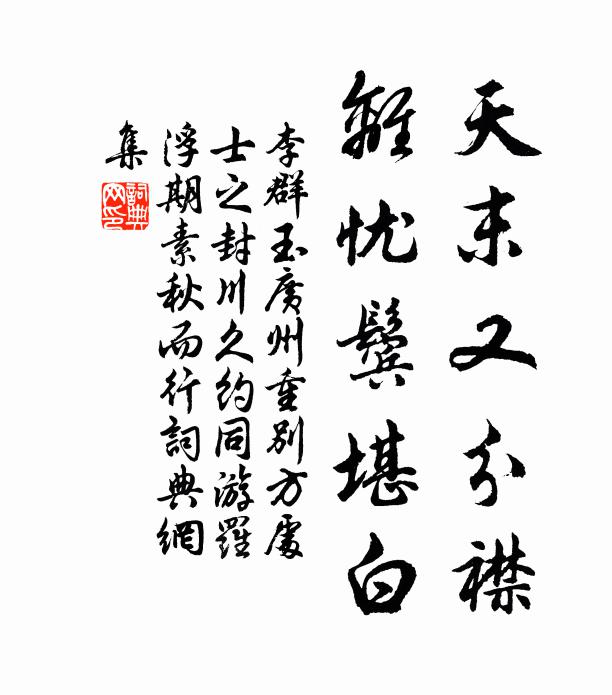 天末又分襟
離忧鬓堪白
李群玉廣州重別方處
士之封川久約同游羅
浮期素秋而行詞典網
集
詞典
网印